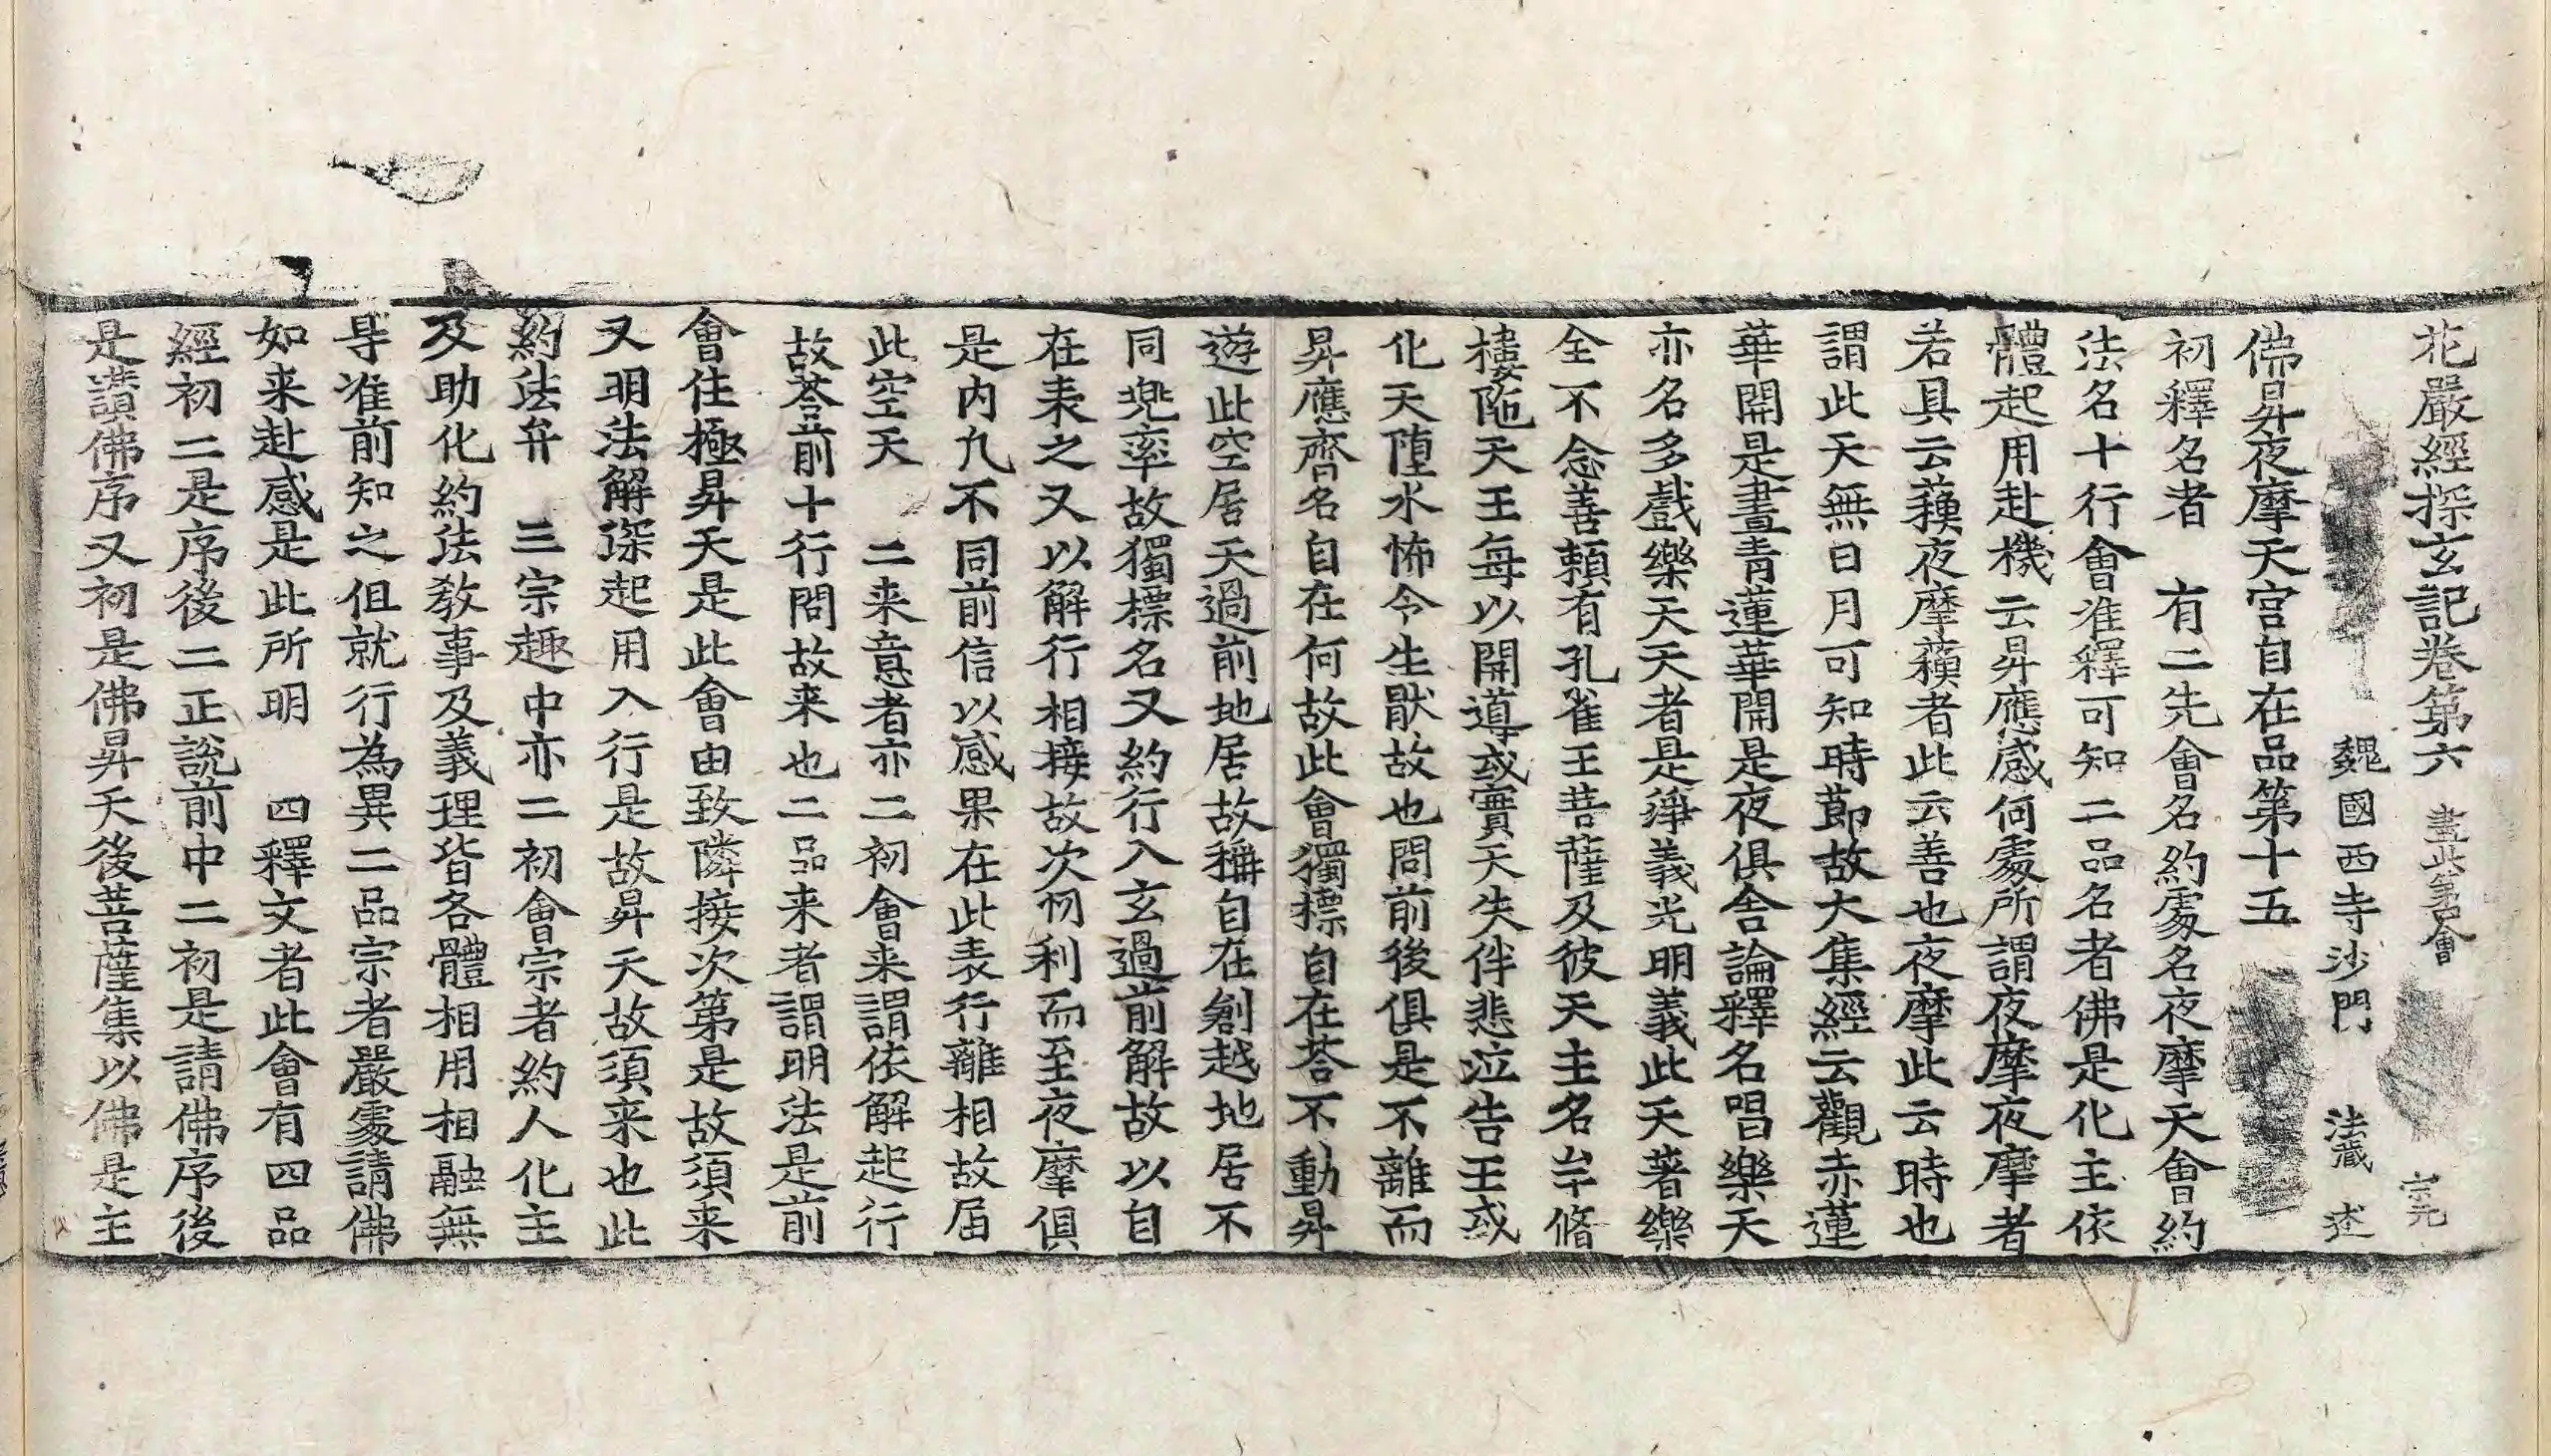 花嚴經探玄記卷第六 盡此第四會 宗元
魏國西寺沙門 法藏 述
佛昇夜摩天宮自在品第十五
初釋名者 有二先會名約處名夜摩天會約
法名十行會准釋可知二品名者佛是化主依
體起用赴機云昇應感何處所謂夜摩夜摩者
若具云蘇夜摩蘇者此云善也夜摩此云時也
謂此天無日月可知時節故大集經云觀赤蓮
華開是晝青蓮華開是夜俱舍論釋名唱樂天
亦名多戲樂天天者是淨義光明義此天著樂
全不念善賴有孔雀王菩薩及彼天主名牟脩
樓陁天王每以開導或實天失伴悲泣告王或
化天墮水怖令生猒故也問前後俱是不離而
昇應齊名自在何故此會獨標自在荅不動昇
遊此空居天過前地居故稱自在創越地居不
同兠率故獨標名又約行入玄過前解故以自
在表之又以解行相接故次忉利而至夜摩俱
是內凡不同前信以感果在此表行離相故届
此空天 二来意者亦二初會来謂依解起行
故荅前十行問故来也二品来者謂明法是前
會住極昇天是此會由致隣接次第是故須来
又明法解深起用入行是故昇天故須来也此
約法弁 三宗趣中亦二初會宗者約人化主
及助化約法教事及義理皆各體相用相融無
㝵准前知之但就行為異二品宗者嚴處請佛
如来赴感是此所明 四釋文者此會有四品
經初二是序後二正說前中二初是請佛序後
是讃佛序又初是佛昇天後菩薩集以佛是主